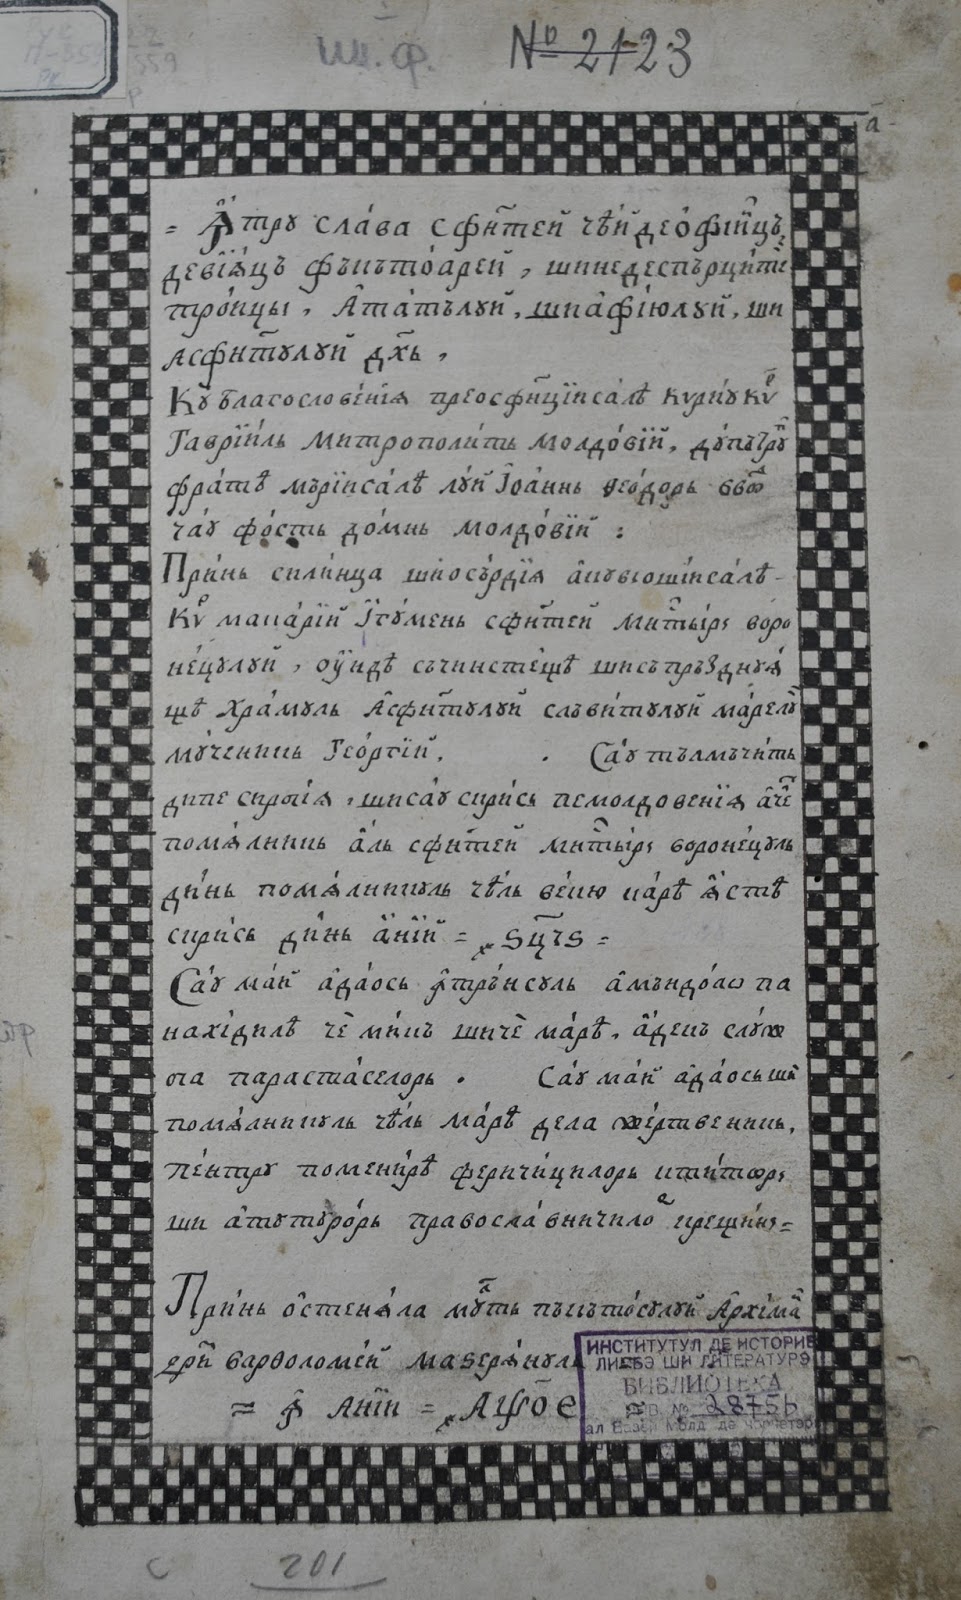 № 2123
а
= Ꙟтру сла́ва сфи́нтей че́й деѡфїи́нцъ,
девїѧ́цъ фъкътоа́рей, шинедеспърци́тїи
тро́ицы, Ата́тълуй, шиафі́юлуй, ши
Асфи́нтулуй дх҃ъ,
Ку благослове́нїѧ преосфинцїисале́ курїѹ ку́р
Гаврїи́ль Митрополи́ть молдо́вїй, ду́пътру
фра́тѣ мърїисале́ лу́й Іѡа́ннь ѳео́дорь воевод
ча́у фо́сть до́мнь молдо́вїй :
При́нь сили́нца шиосърдїѧ акувїошїисале́
ку́р мака́рїй Їгу́мень сфи́нтей мънъсти́рѝ воро
не́цулуй, ѹ́ндѣ съчинсте́щѣ шисъпръзднуѧ́
щѣ хра́муль Асфи́нтулуй слъви́тулуй ма́релуй
му́ченикь Гео́ргїй. Са́у тълмъчи́ть
дипе сирбі́ѧ, шиса́у скри́сь пемолдовені́ѧ аче́ст
помѧ́лникь а́ль сфи́нтей мънъсти́рѝ вороне́цуль
ди́нь помѧ́лникуль че́ль ве́кю ка́рѣ ꙗ́стѣ
скри́сь ди́нь а́нїй = ҂ѕцчѕ =
Са́у ма́й ада́ось ꙟтръ́нсуль амъндо́ао па
нахі́дилѣ че́ ми́къ шиче́ ма́рѣ, а́декъ слу́ж
ба параста́селорь. Са́у ма́й ада́осьши
помѧ́лникуль че́ль ма́рѣ дела же́ртвеникь,
пе́нтру помени́рѣ феричи́цилорь кти́торѝ
ши атуту́рорь правосла́вничилор креши́нѝ =
При́нь остенѧ́ла му́лть пъкъто́сулуй Архіма́н
дри́т Варѳоломе́й мазерѧ́нуль
= ꙟ Анїи = ҂АѰОЕ =
ИНСТИТУТУЛ ДЕ ИСТОРИЕ
ЛИМБЭ ШИ ЛИТЕРАТУРЭ
БИБЛИОТЕКА
ИНВ. № 28756
201